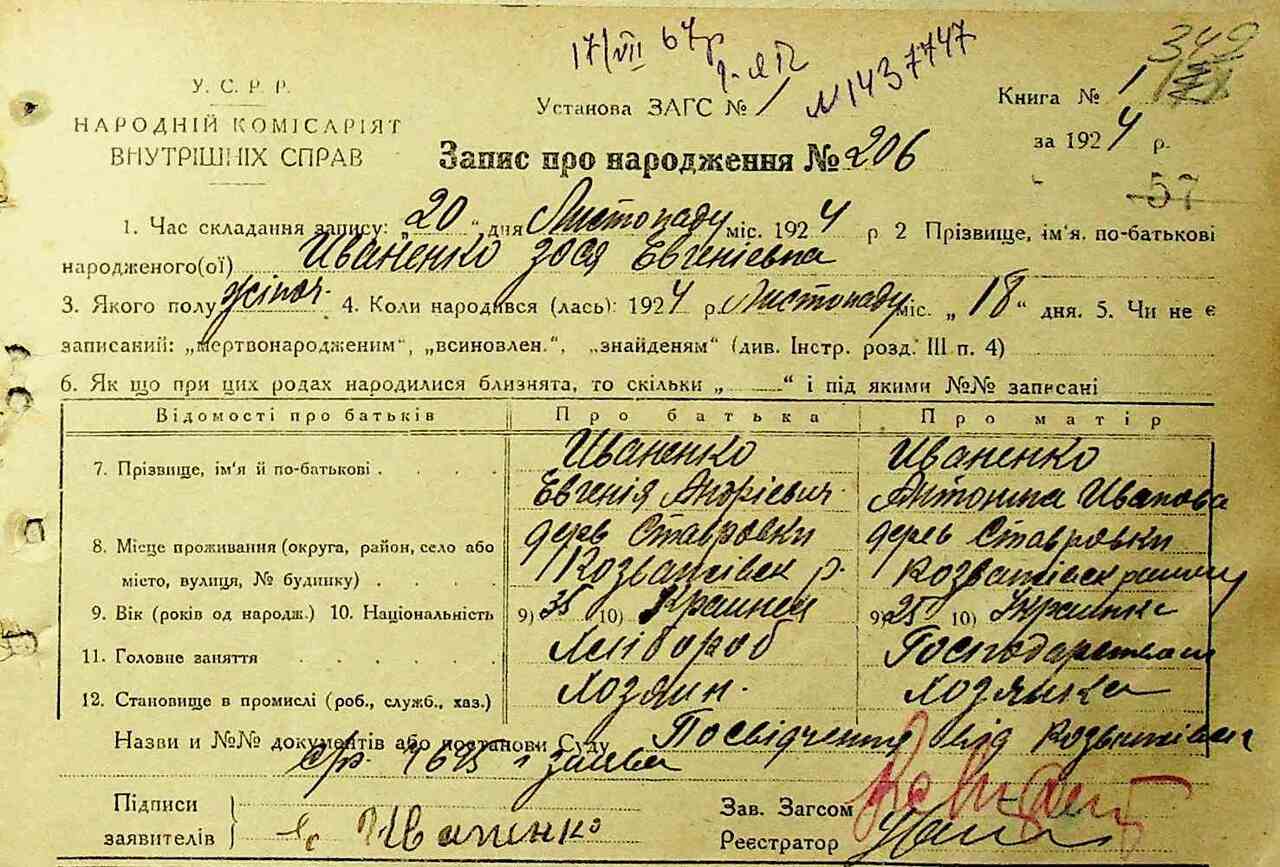 17/VII 67р
№1437747
349
У. С. Р. Р.
НАРОДНІЙ КОМІСАРІЯТ
ВНУТРІШНІХ СПРАВ
Установа ЗАГС № 1
Книга № 1
за 1924 р.
Запис про народження № 206
57
1. Час складання запису: „20“ дня Листопаду міс. 1924 р 2 Прізвище, ім'я, по-батькові
народженого(ої) Иваненко Зося Евгеніевна
3. Якого полу жіноч. 4. Коли народився (лась): 1924 р. Листопаду міс. „18“ дня. 5. Чи не є
записаний: „мертвонародженим“, „всиновлен.“, „знайденям“ (див. Інстр. розд. III п. 4)
6. Як що при цих родах народилися близнята, то скільки „ “ і під якими №№ записані
Відомості про батьків Про батька Про матір
7. Прізвище, ім'я й по-батькові Иваненко Иваненко
Евгенія Андріевич Антонина Иванова
8. Місце проживання (округа, район, село або дерев Ставровки дерев Ставровки
місто, вулиця, № будинку) р.
9. Вік (років од народж.) 10. Національність 9) 35 10) Украинец 9) 25 10) Украинка
11. Головне заняття Хлібороб
12. Становище в промислі (роб., служб., хаз.) Хозяин. Хозяйка
Назви и №№ документів або постанови Суду Посвідчення від
заява
Підписи
заявителів Иваненко
Зав. Загсом
Реєстратор